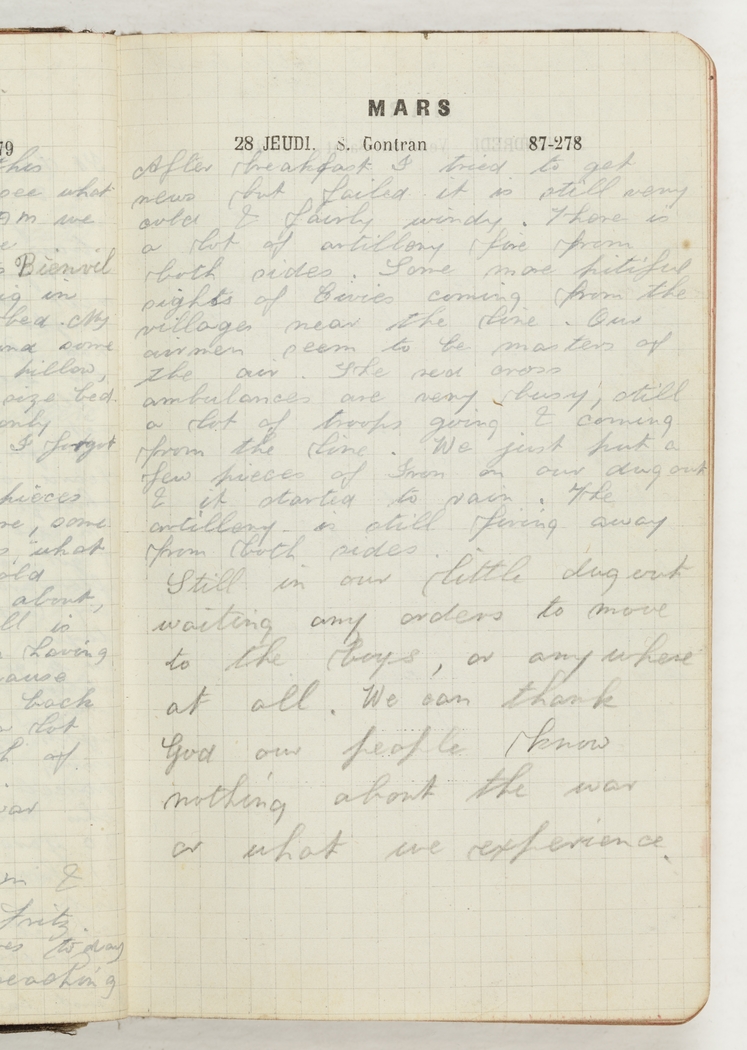 79
this
see what
am we
e
s Bienvil
ig in
bed. My
and some
pillow,
size bed.
only
I forgot
pieces
re, some
s, what
old
about,
ll is
n having
cause
back
a lot
h of
war
on &
Fritz.
es to day
reaching
MARS
28 JEUDI. S. Gontran 87-278
After breakfast I tried to get
news but failed it is still very
cold & fairly windy. There is
a lot of artillery fire from
both sides. Some more pitiful
sights of Civies coming from the
villages near the line. Our
airmen seem to be masters of
the air. The red cross
ambulances are very busy, still
a lot of troops going & coming
from the line. We just put a
few pieces of Iron on our dug out
& it started to rain. The
artillery is still firing away
from both sides.
Still in our little dug out
waiting any orders to move
to the boys, or any where
at all. We can thank
God our people know
nothing about the war
or what we experience.